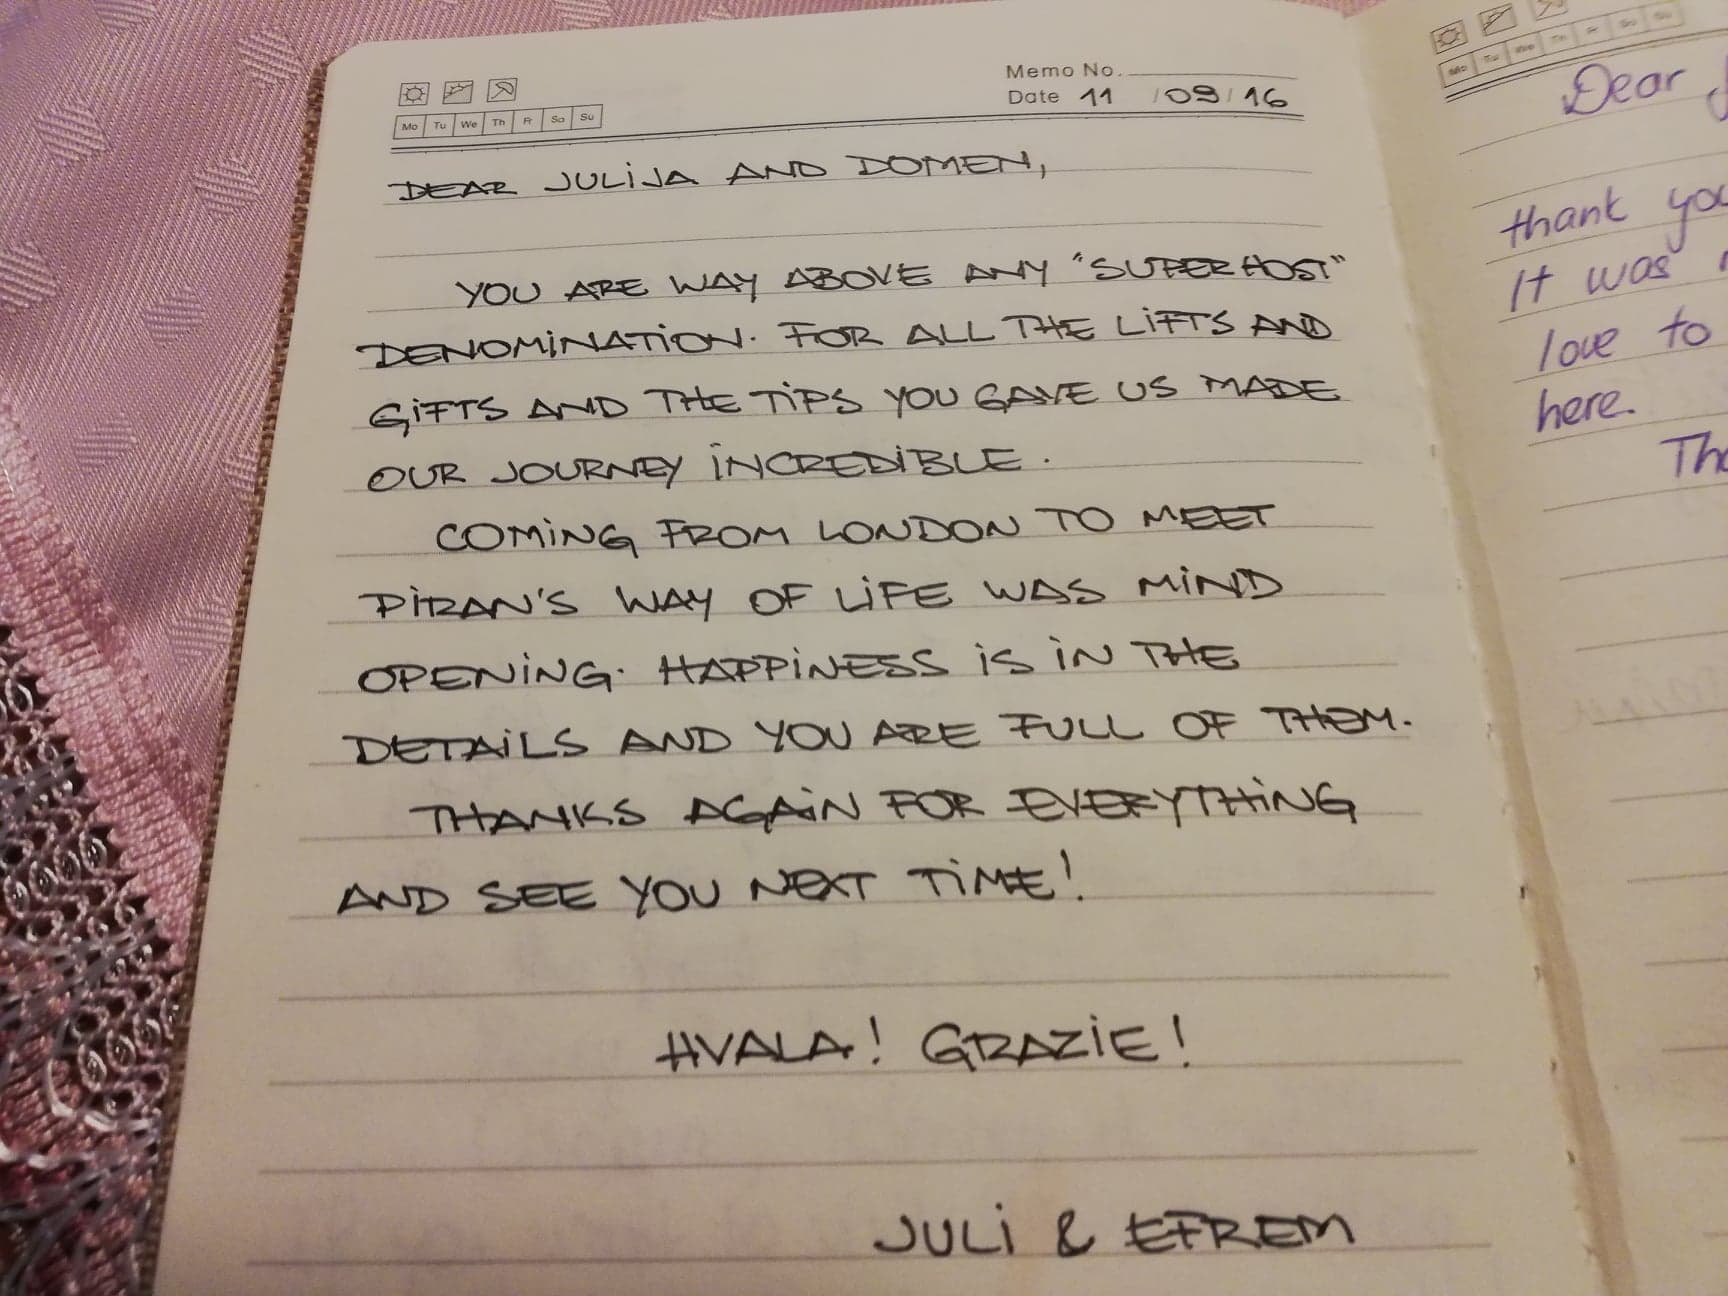 Memo No.
Date 11 / 09 / 16
Mo Tu We Th Fr Sa Su
DEAR JULIJA AND DOMEN,
YOU ARE WAY ABOVE ANY "SUPERHOST"
DENOMINATION. FOR ALL THE LIFTS AND
GIFTS AND THE TIPS YOU GAVE US MADE
OUR JOURNEY INCREDIBLE.
COMING FROM LONDON TO MEET
PIRAN'S WAY OF LIFE WAS MIND
OPENING. HAPPINESS IS IN THE
DETAILS AND YOU ARE FULL OF THEM.
THANKS AGAIN FOR EVERYTHING
AND SEE YOU NEXT TIME!
HVALA! GRAZIE!
JULI & EFREM
Mo Tu We Th Fr Sa Su
Dear
thank you
It was
love to
here.